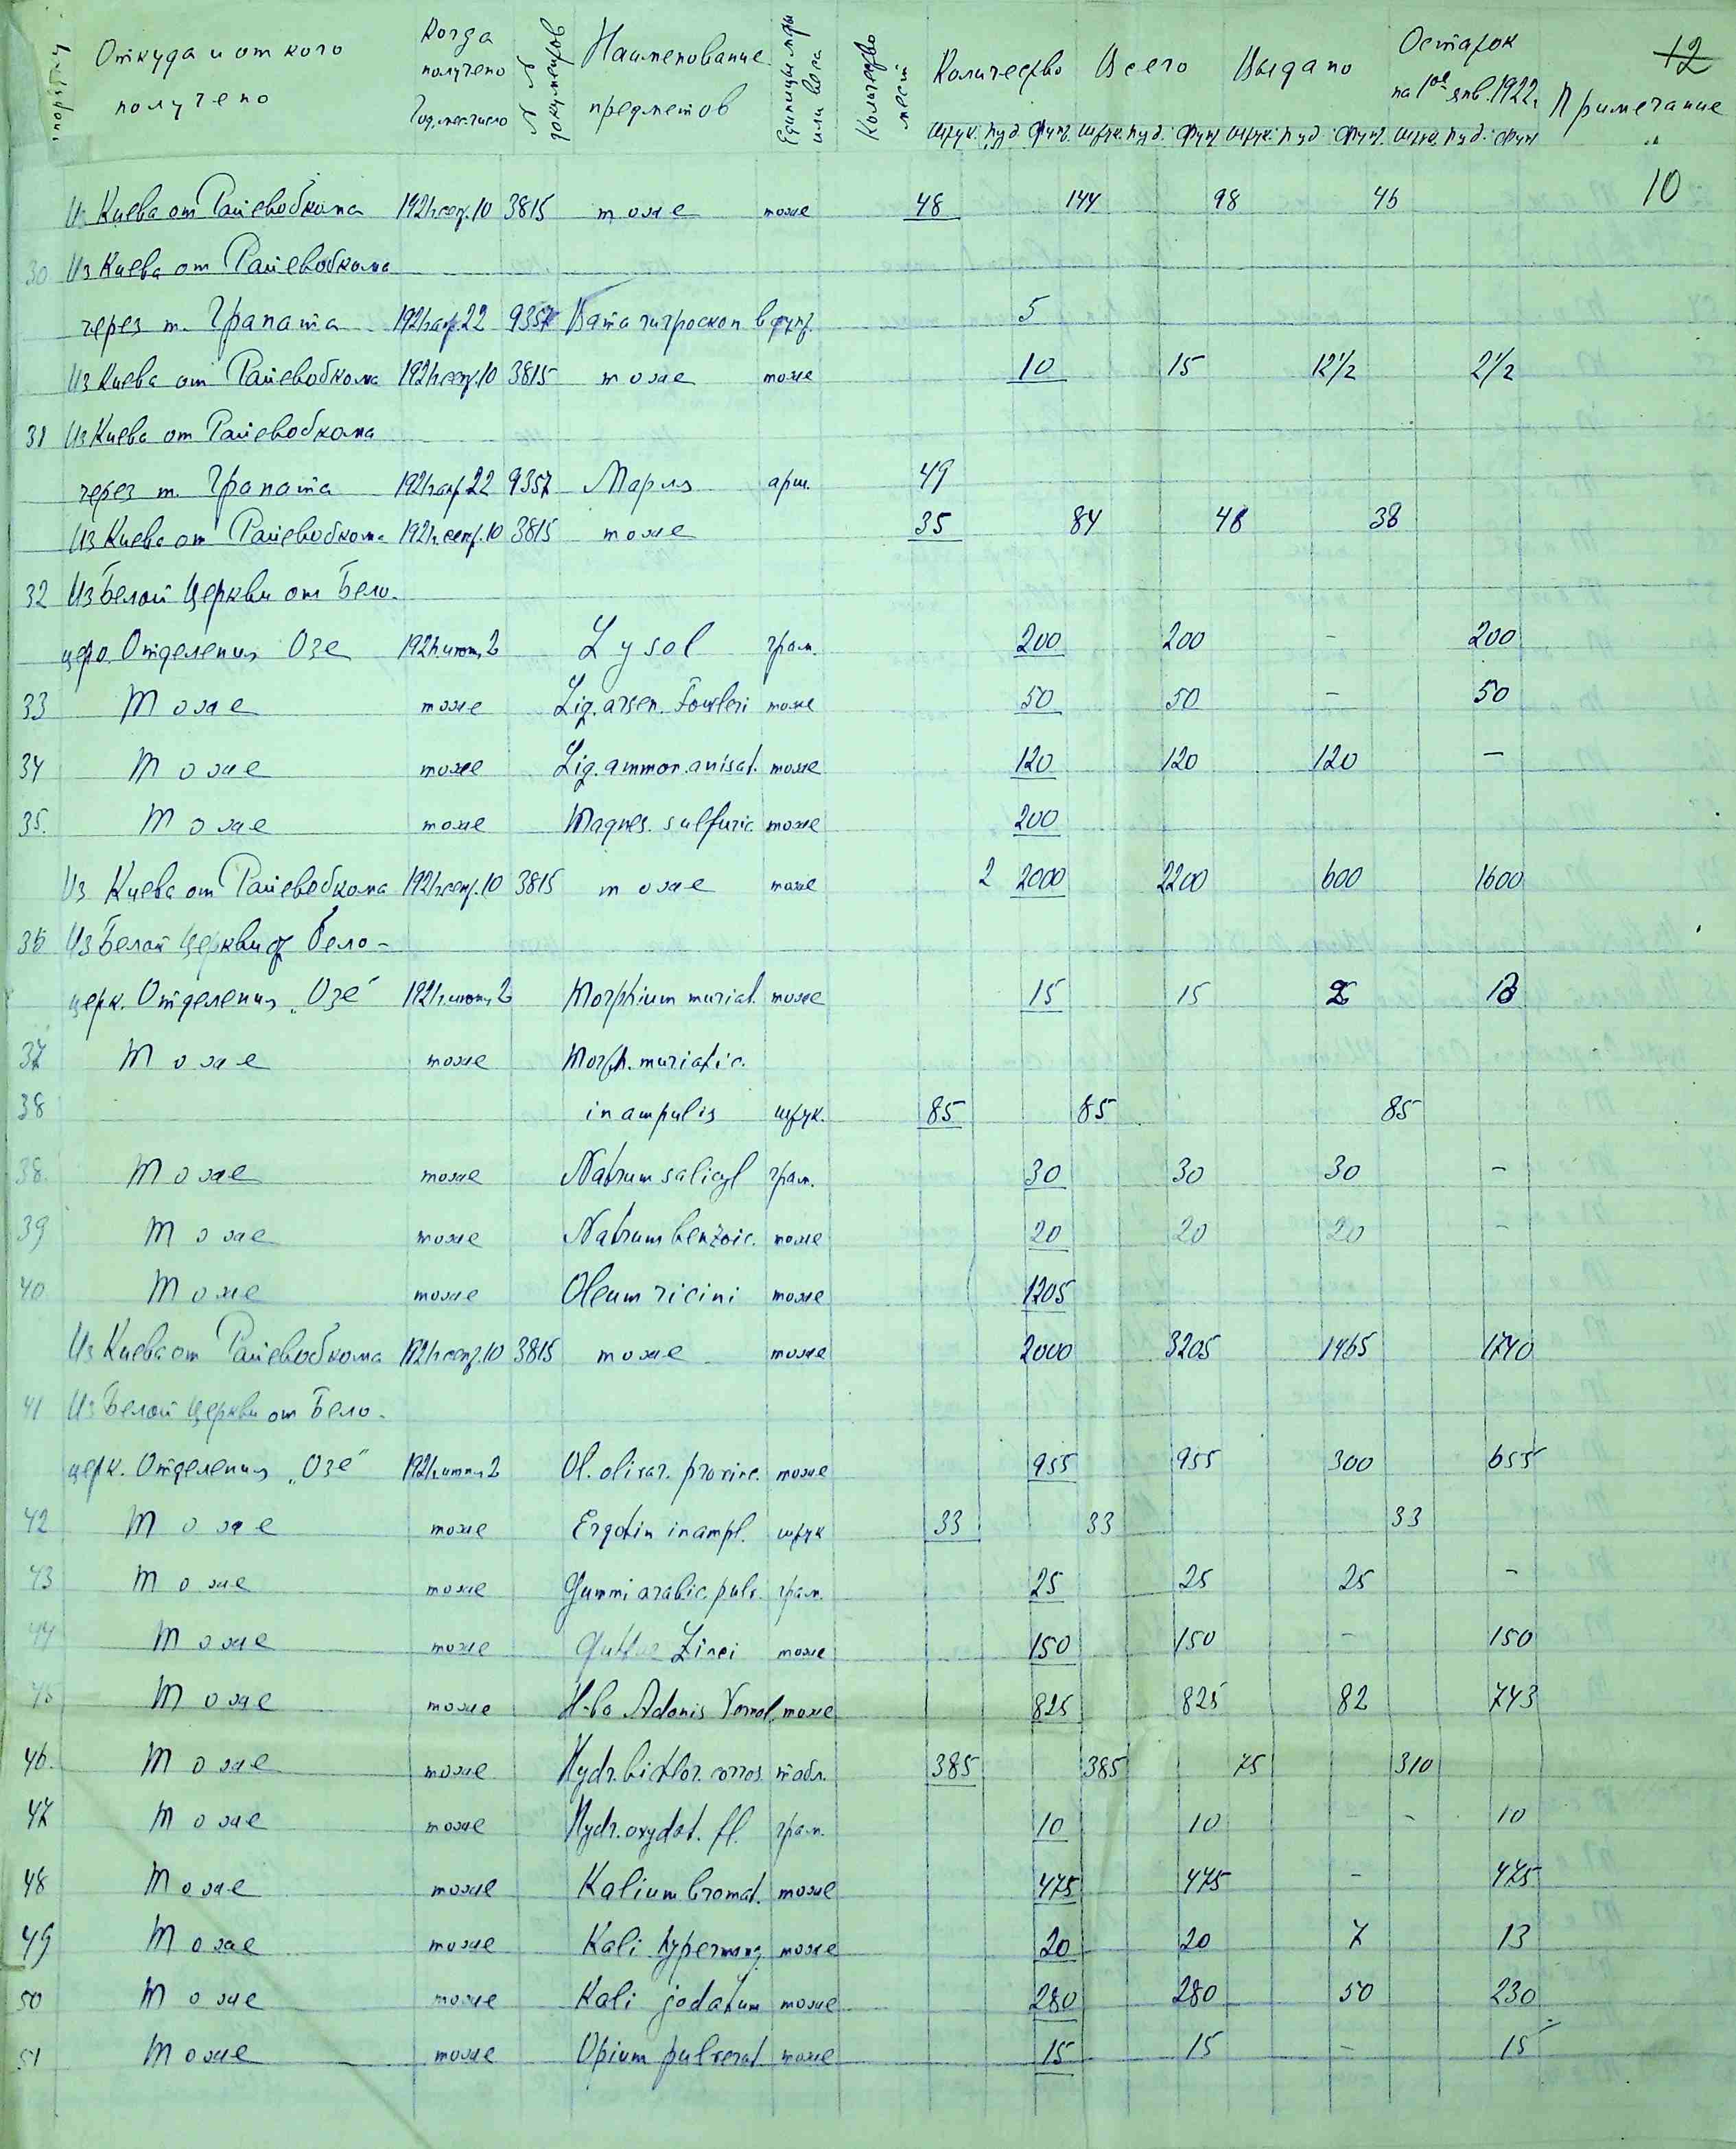 № по порядку Откуда и от кого получено Когда получено Год, мес. число №№ документов Наименование предметов Единицы меры или веса Количество мест Количество Всего Выдано Остаток на 1ое янв. 1922 г. Примечание
12
штук. пуд. фунт. штук. пуд. фунт. штук. пуд. фунт. штук. пуд. фунт
Из Киева от Райевобкома 1921 г. сент. 10 3815 тоже тоже 48 144 98 46 10
30 Из Киева от Райевобкома
через т. Граната 1921 г. апр. 22 9357 Вата гигроскоп в фунт. 5
Из Киева от Райевобкома 1921 г. сент. 10 3815 тоже тоже 10 15 12 1/2 2 1/2
31 Из Киева от Райевобкома
через т. Граната 1921 г. апр. 22 9357 Марля арш. 49
Из Киева от Райевобкома 1921 г. сент. 10 3815 тоже 35 84 48 38
32 Из Белой Церкви от Бело-
церо. Отделения Озе 1921 г. июня 2 Lysol грам. 200 200 - 200
33 Тоже тоже Liq. arsen. Fowleri тоже 50 50 - 50
34 Тоже тоже Liq. ammon. anisat. тоже 120 120 120 -
35. Тоже тоже Magnes. sulfuric. тоже 200
Из Киева от Райевобкома 1921 г. сент. 10 3815 тоже тоже 2 2000 2200 600 1600
36 Из Белой Церкви от Бело-
церк. Отделения „Озе" 1921 г. июня 2 Morphium muriat. тоже 15 15 2 13
37 Тоже тоже Morph. muriatic.
38 in ampulis штук. 85 85 85
38. Тоже тоже Natrum salicyl грам. 30 30 30 -
39 Тоже тоже Natrum benzoic. тоже 20 20 20 -
40 Тоже тоже Oleum ricini тоже 1205
Из Киева от Райевобкома 1921 г. сент. 10 3815 тоже тоже 2000 3205 1465 1740
41 Из Белой Церкви от Бело-
церк. Отделения „Озе" 1921 г. июня 2 Ol. olivar. provinc. тоже 955 955 300 655
42 Тоже тоже Ergotin in ampl. штук 33 33 33
43 Тоже тоже Gummi arabic. pulv. грам. 25 25 25 -
44 Тоже тоже Guttae Zinci тоже 150 150 - 150
45 Тоже тоже H-ba Adonis Vernal. тоже 825 825 82 743
46. Тоже тоже Hydr. bichlor. corros. табл. 385 385 75 310
47 Тоже тоже Hydr. oxydat. fl. грам. 10 10 - - 10
48 Тоже тоже Kalium bromat. тоже 475 475 - 475
49 Тоже тоже Kali hypermang. тоже 20 20 7 13
50 Тоже тоже Kali jodatum тоже 280 280 50 230
51 Тоже тоже Opium pulverat тоже 15 15 - 15